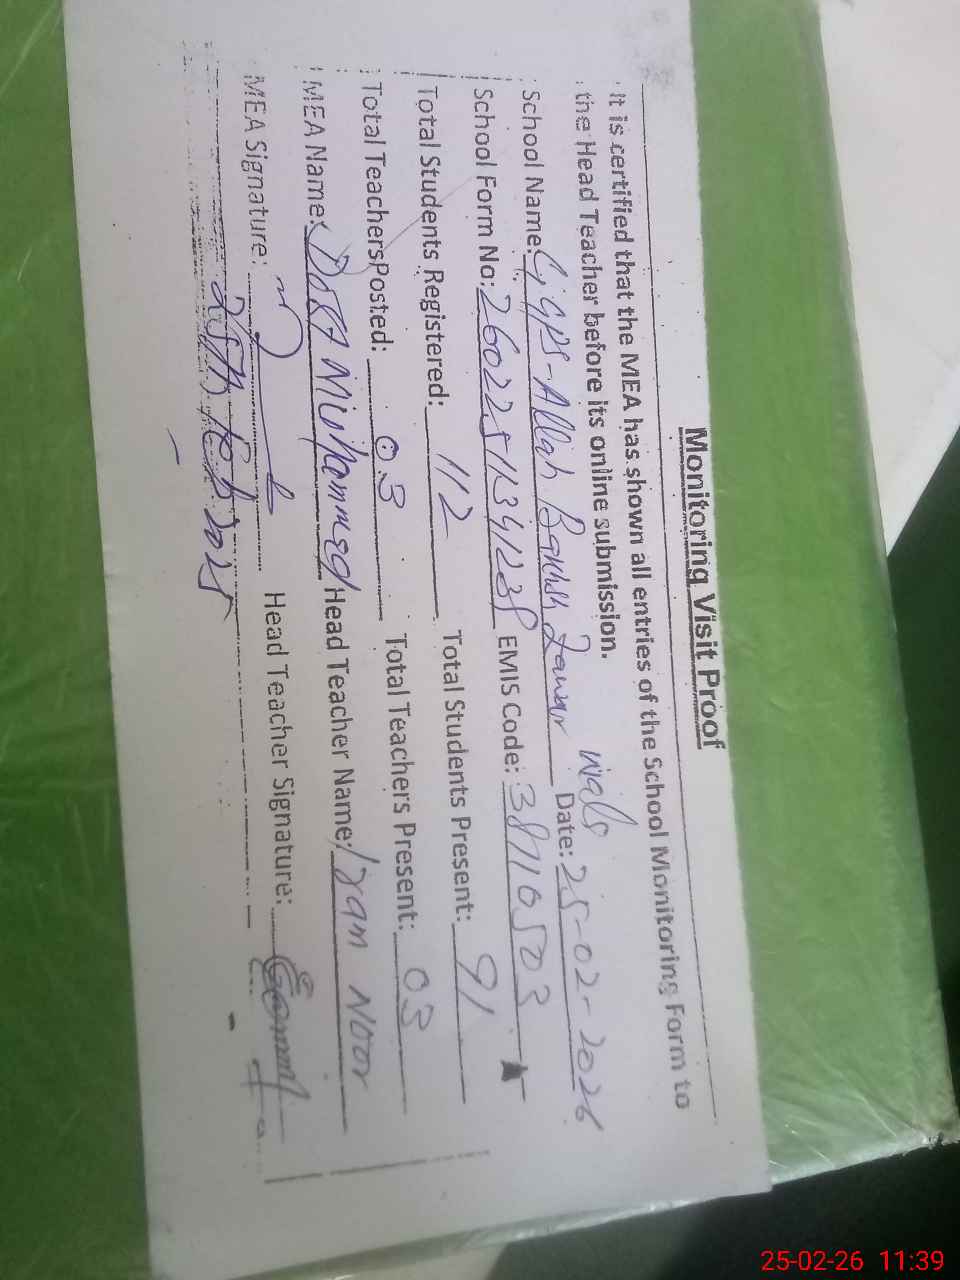 Monitoring Visit Proof
It is certified that the MEA has shown all entries of the School Monitoring Form to
the Head Teacher before its online submission.
School Name: GGPS-Allah Bakhsh Zawar wala Date: 25-02-2026
School Form No: EMIS Code: 38110503
Total Students Registered: 112 Total Students Present: 91
Total Teachers Posted: 03 Total Teachers Present: 03
MEA Name: Dost Muhammad Head Teacher Name: Iram Noor
MEA Signature: Head Teacher Signature:
25th Feb 2025
25-02-26 11:39